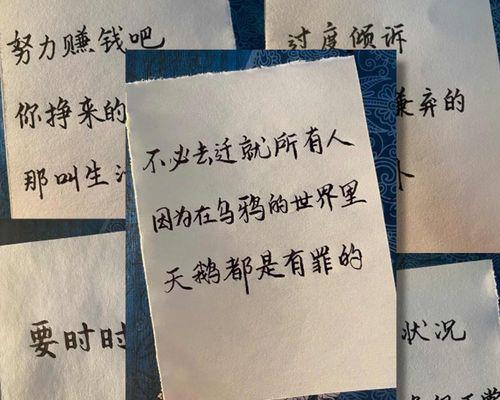 努力赚钱吧
你挣来的
那叫生
过度倾诉
弃的
不必去迁就所有人
因为在乌鸦的世界里
天鹅都是有罪的
要时时
状况